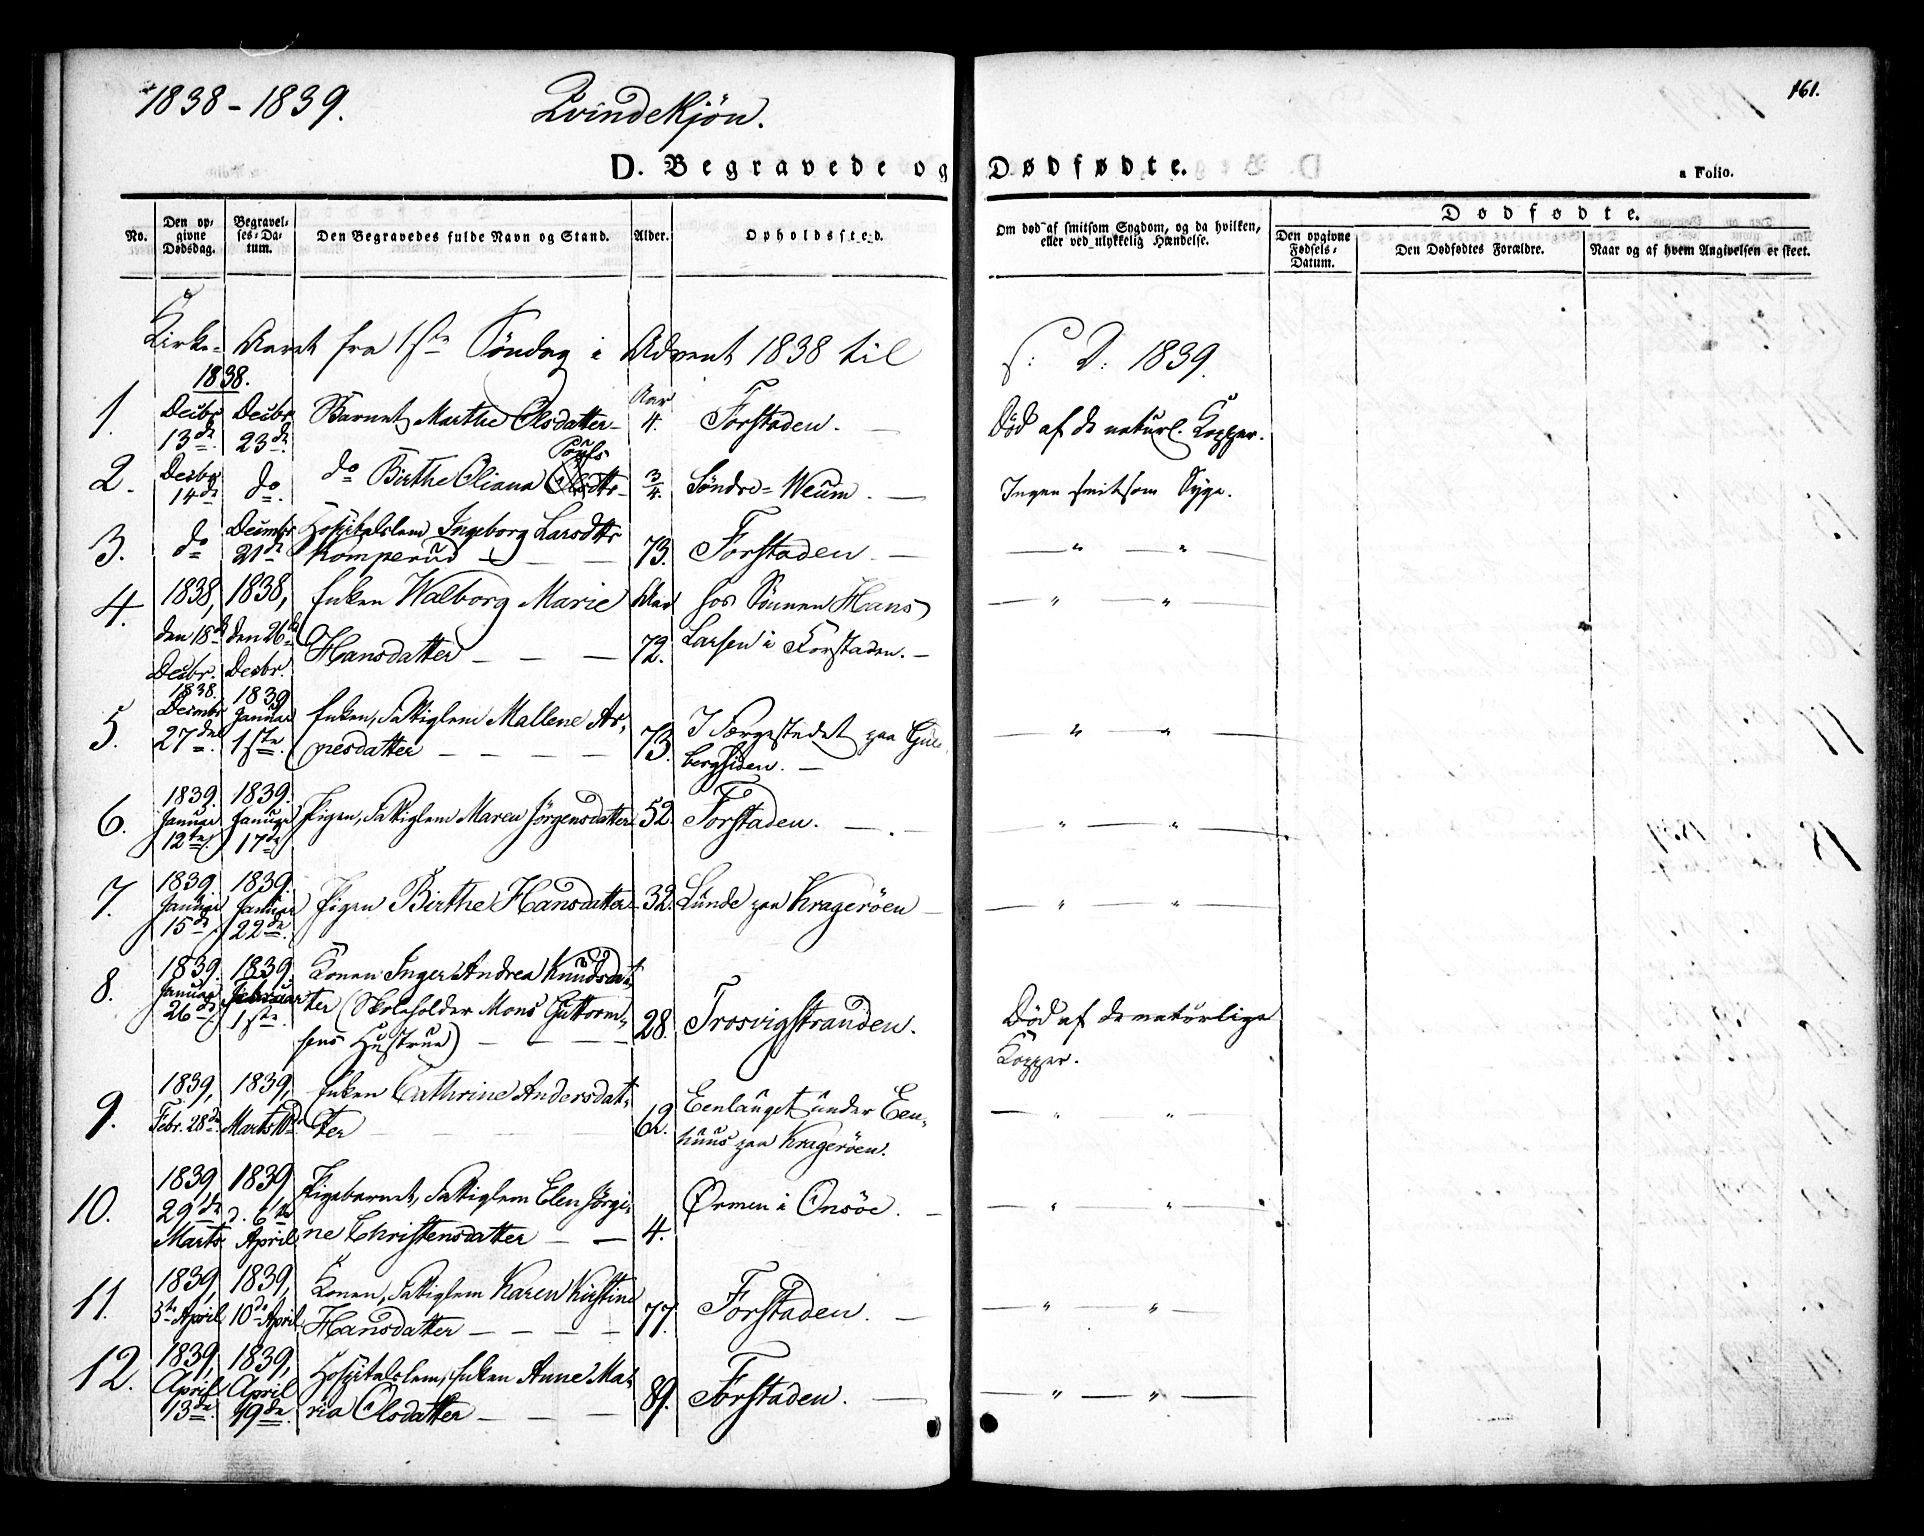 1838-1839. Qvindekjön.
161.
D. Begravede og Dødfødte.
a Folio.
No.
Den op-
givne
Dødsdag.
Begravel-
ses-Da-
tum.
Den Begravedes fulde Navn og Stand.
Alder.
Opholdssted.
Om død af smitsom Sygdom, og da hvilken,
eller ved ulykkelig Hændelse.
Dødfødte.
Den opgivne
Fødsels-
Datum.
Den Dødfødtes Forældre.
Naar og af hvem Angivelsen er skeet.
Kirke-Aaret fra 1ste Söndag i Advent 1838 til
S: D: 1839.
1838.
1. Decbr 13de Decbr 23de Barnet Marthe Olsdatter Aar 4. Forstaden. Död af de naturl. Kopper.
2. Decbr 14de do do Birthe Oliana Olsdtr 3/4. Söndre-Weum. Ingen smitsom Syge.
3. do Decembr 21de Hospitalslem Ingeborg Larsdtr
Komperud 73. Forstaden. " "
4. 1838, 1838, Enken Walborg Marie hos Sönnen Hans " "
den 18de den 26de Hansdatter 72. Larsen i Forstaden.
Decbr. Decbr.
1838. 1839
5. Decembr Januar Enken, Fattiglem Mallene Ar- I Færgestedet paa Gul- " "
27de 1ste nesdatter 73. bergsiden.
1839. 1839.
6. Januar Januar Pigen, Fattiglem Maren Jörgensdatter 52. Forstaden. " "
12te 17de
1839. 1839.
7. Januar Januar Pigen Birthe Hansdatter 32. Lunde paa Krageröen " "
15de 22de
1839. 1839. Konen Inger Andrea Knudsdat-
8. Januar Februar ter (Skoleholder Mons Guttorm- Död af de naturlige
26de 1ste sens Hustrue) 28. Trosvigstranden. Kopper.
1839, 1839, Enken Cathrine Andersdat- Eenlauget under Een-
9. Febr. 28de Marts 10de ter 62. huus paa Krageröen. " "
1839, 1839, Pigebarnet, Fattiglem Elen Jörgi- Ørmen i Onsöe. " "
10. 29de d. 6te ne Christensdatter 4.
Marts April
1839, 1839, Konen, Fattiglem Karen Kirstine
11. 3de April 10de April Hansdatter 77. Forstaden. " "
1839, 1839, Hospitalslem, Enken Anne Ma-
12. April April ria Olsdatter 89. Forstaden. " "
13de 19de